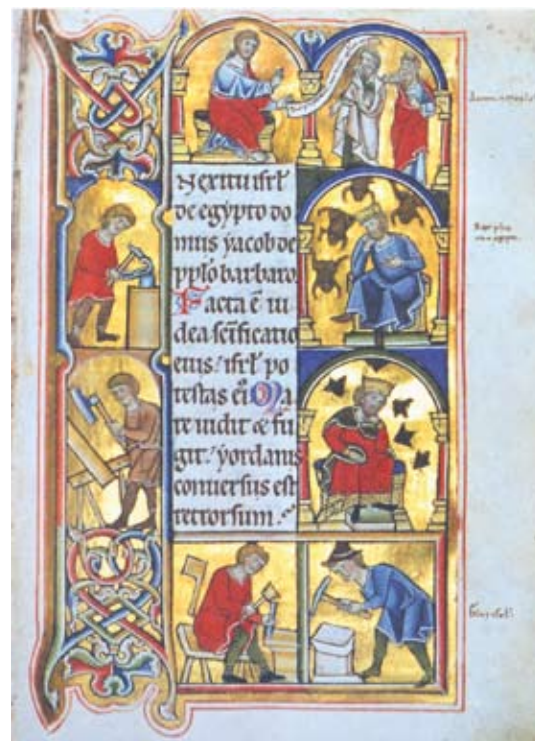 N exitu isrl
de egypto do
mus yacob de
pplo barbaro.
Facta ē iu
dea scīficatio
eius / isrl po
testas ei Ma
re uidit & fu
git / yordanis
conuersus est
retrorsum.